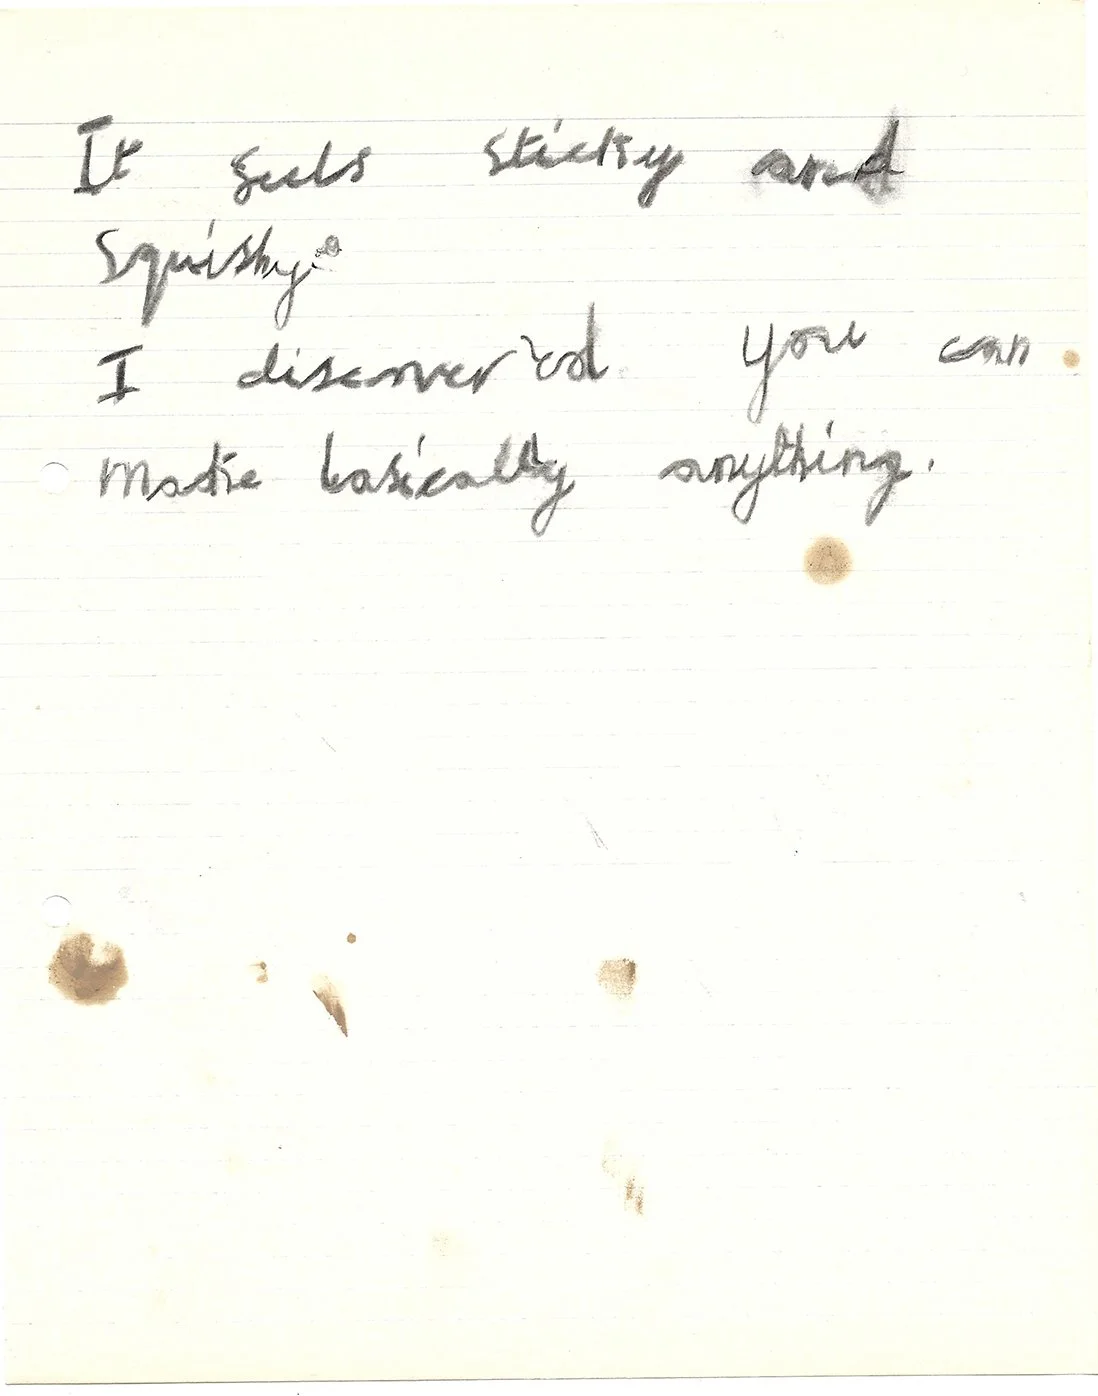 It feels sticky and
squishy.
I discover'ed you can
make basically anything.